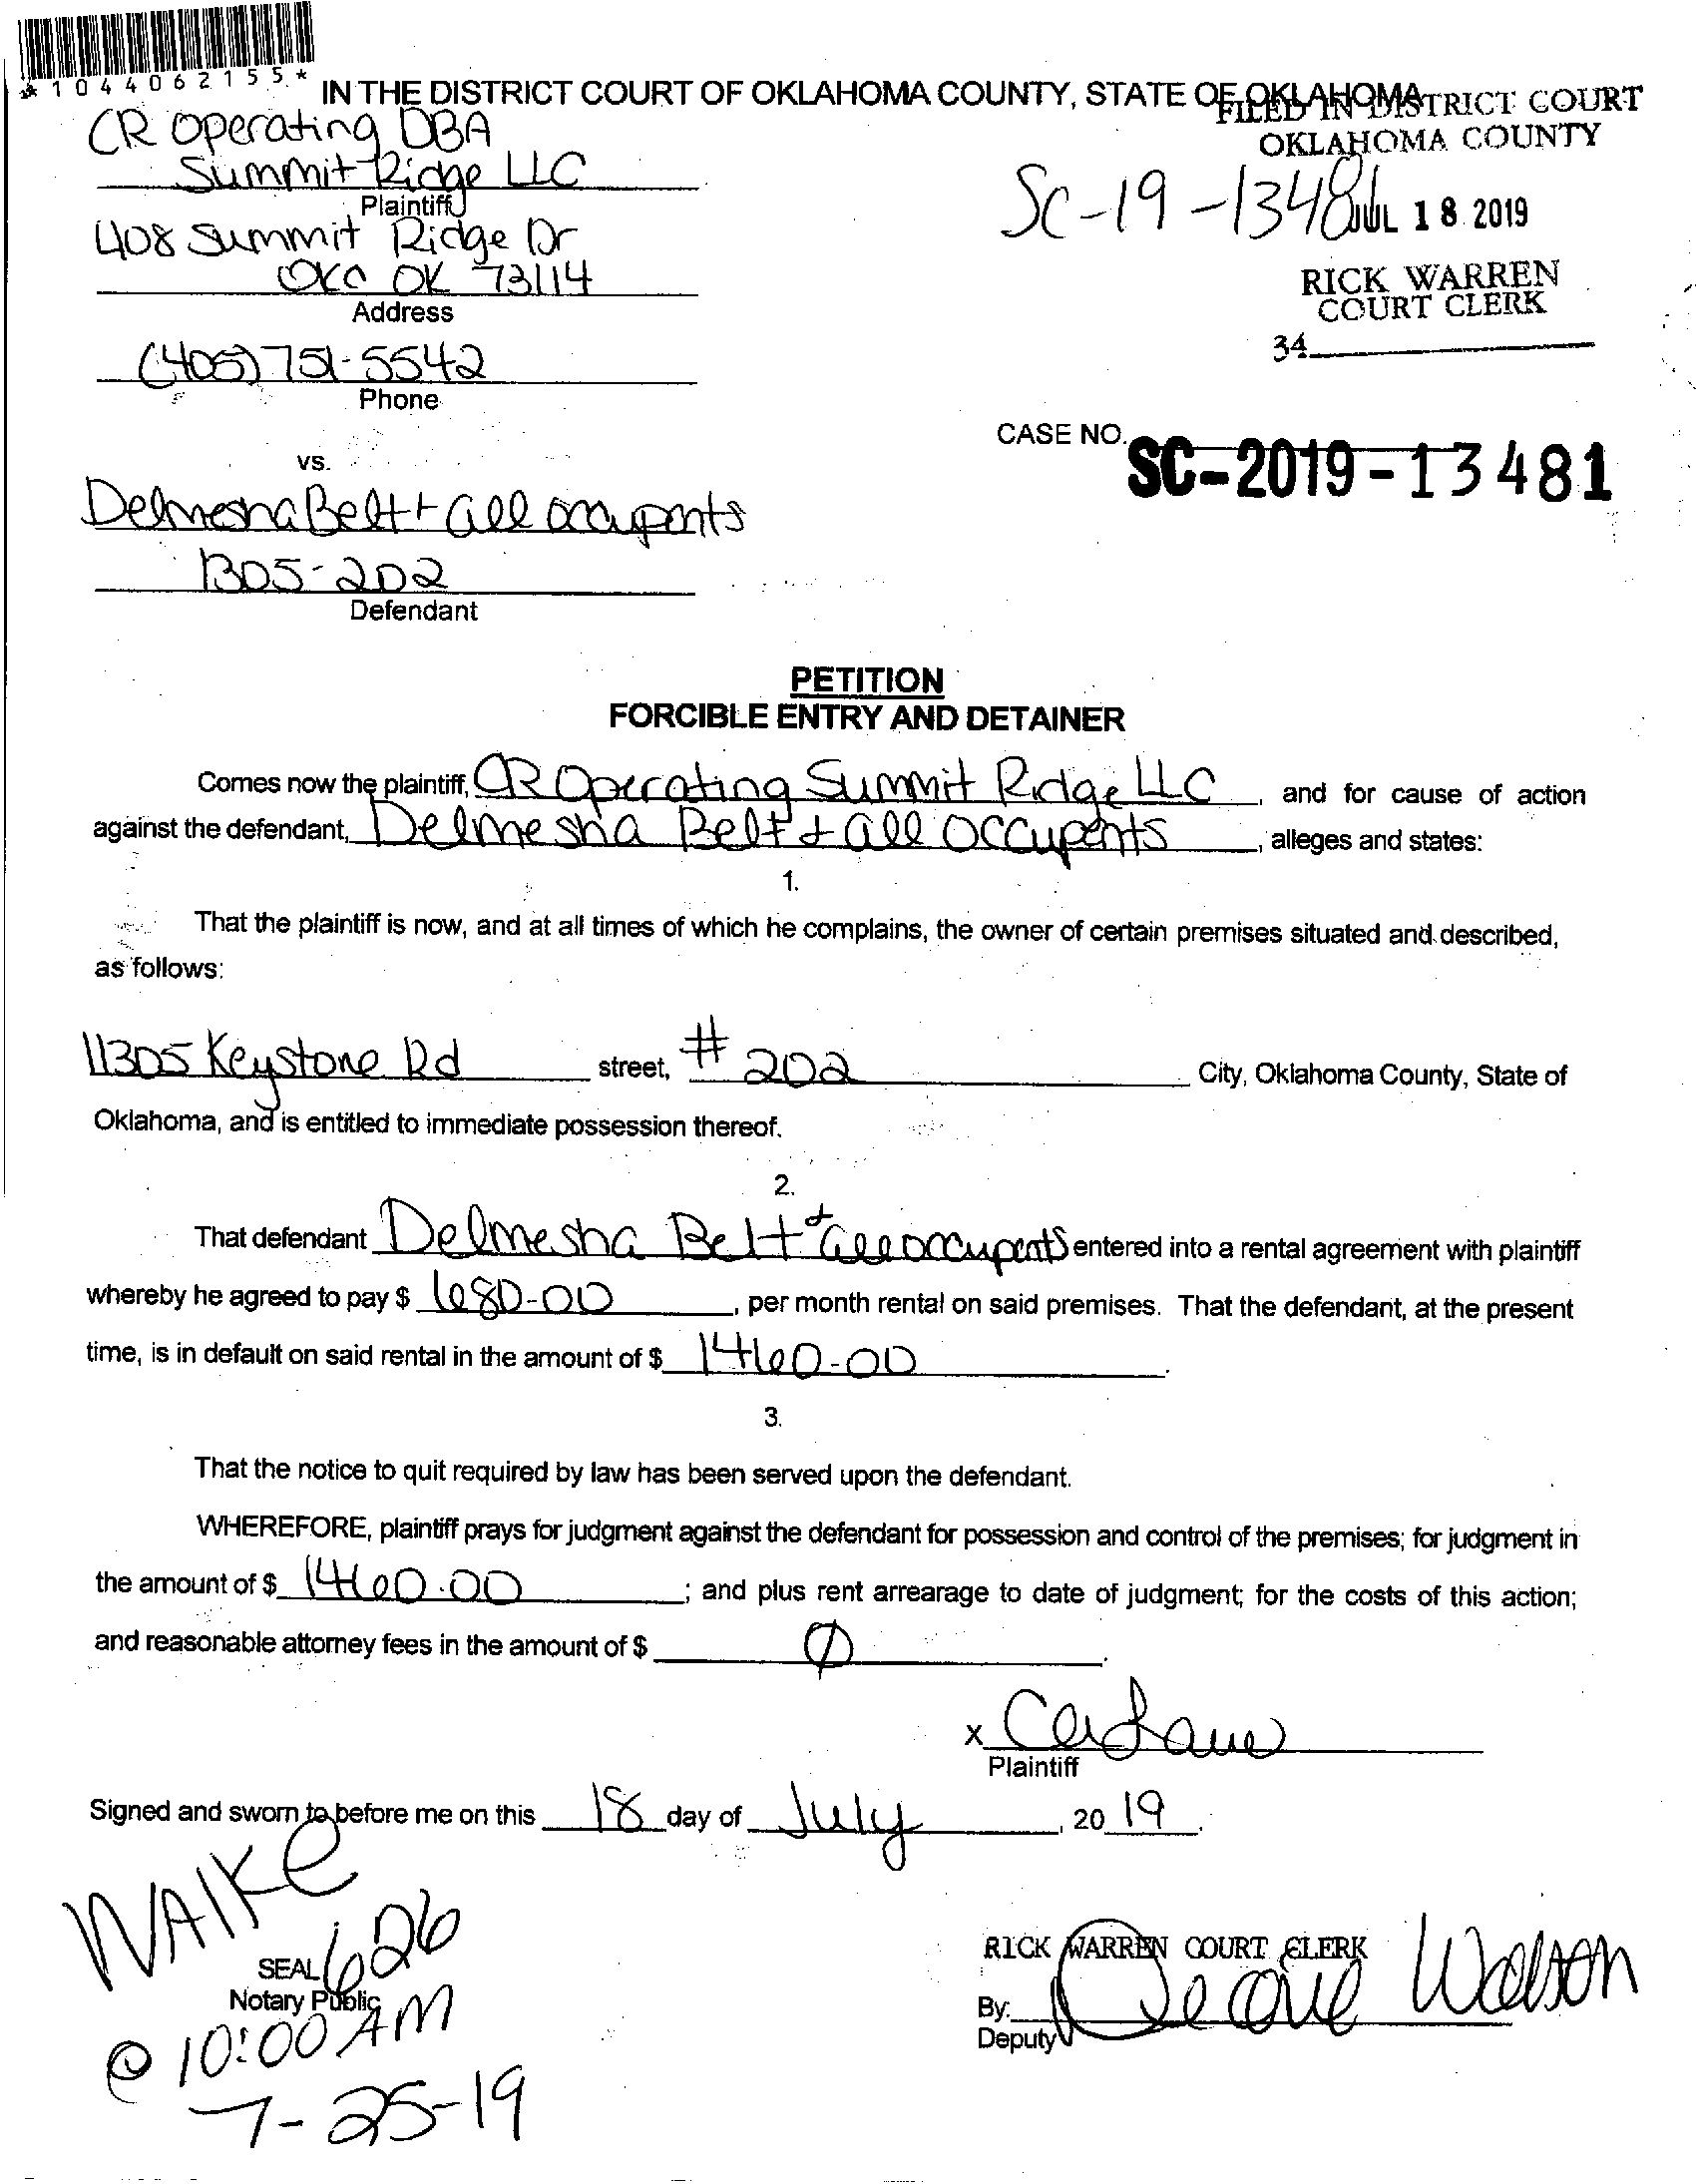 *1044062155*
IN THE DISTRICT COURT OF OKLAHOMA COUNTY, STATE OF OKLAHOMA
FILED IN DISTRICT COURT
OKLAHOMA COUNTY
CR Operating DBA
Summit Ridge LLC
Plaintiff
SC-19-13481
JUL 18 2019
408 Summit Ridge Dr
OKC OK 73114
Address
RICK WARREN
COURT CLERK
34
(405) 751-5542
Phone
CASE NO. SC-2019-13481
vs.
Delmesha Belt + all occupents
1305-202
Defendant
PETITION
FORCIBLE ENTRY AND DETAINER
Comes now the plaintiff, CR Operating Summit Ridge LLC, and for cause of action
against the defendant, Delmesha Belt + all occupents, alleges and states:
1.
That the plaintiff is now, and at all times of which he complains, the owner of certain premises situated and described,
as follows:
11305 Keystone Rd street, # 202 City, Oklahoma County, State of
Oklahoma, and is entitled to immediate possession thereof.
2.
That defendant Delmesha Belt + all occupents entered into a rental agreement with plaintiff
whereby he agreed to pay $ 680-00, per month rental on said premises. That the defendant, at the present
time, is in default on said rental in the amount of $ 1460-00.
3.
That the notice to quit required by law has been served upon the defendant.
WHEREFORE, plaintiff prays for judgment against the defendant for possession and control of the premises; for judgment in
the amount of $ 1460.00; and plus rent arrearage to date of judgment; for the costs of this action;
and reasonable attorney fees in the amount of $ Ø.
x
Plaintiff
Signed and sworn to before me on this 18 day of July, 20 19.
WAIKE
626
SEAL
Notary Public
@ 10:00 AM
7-25-19
RICK WARREN COURT CLERK
By: Watson
Deputy